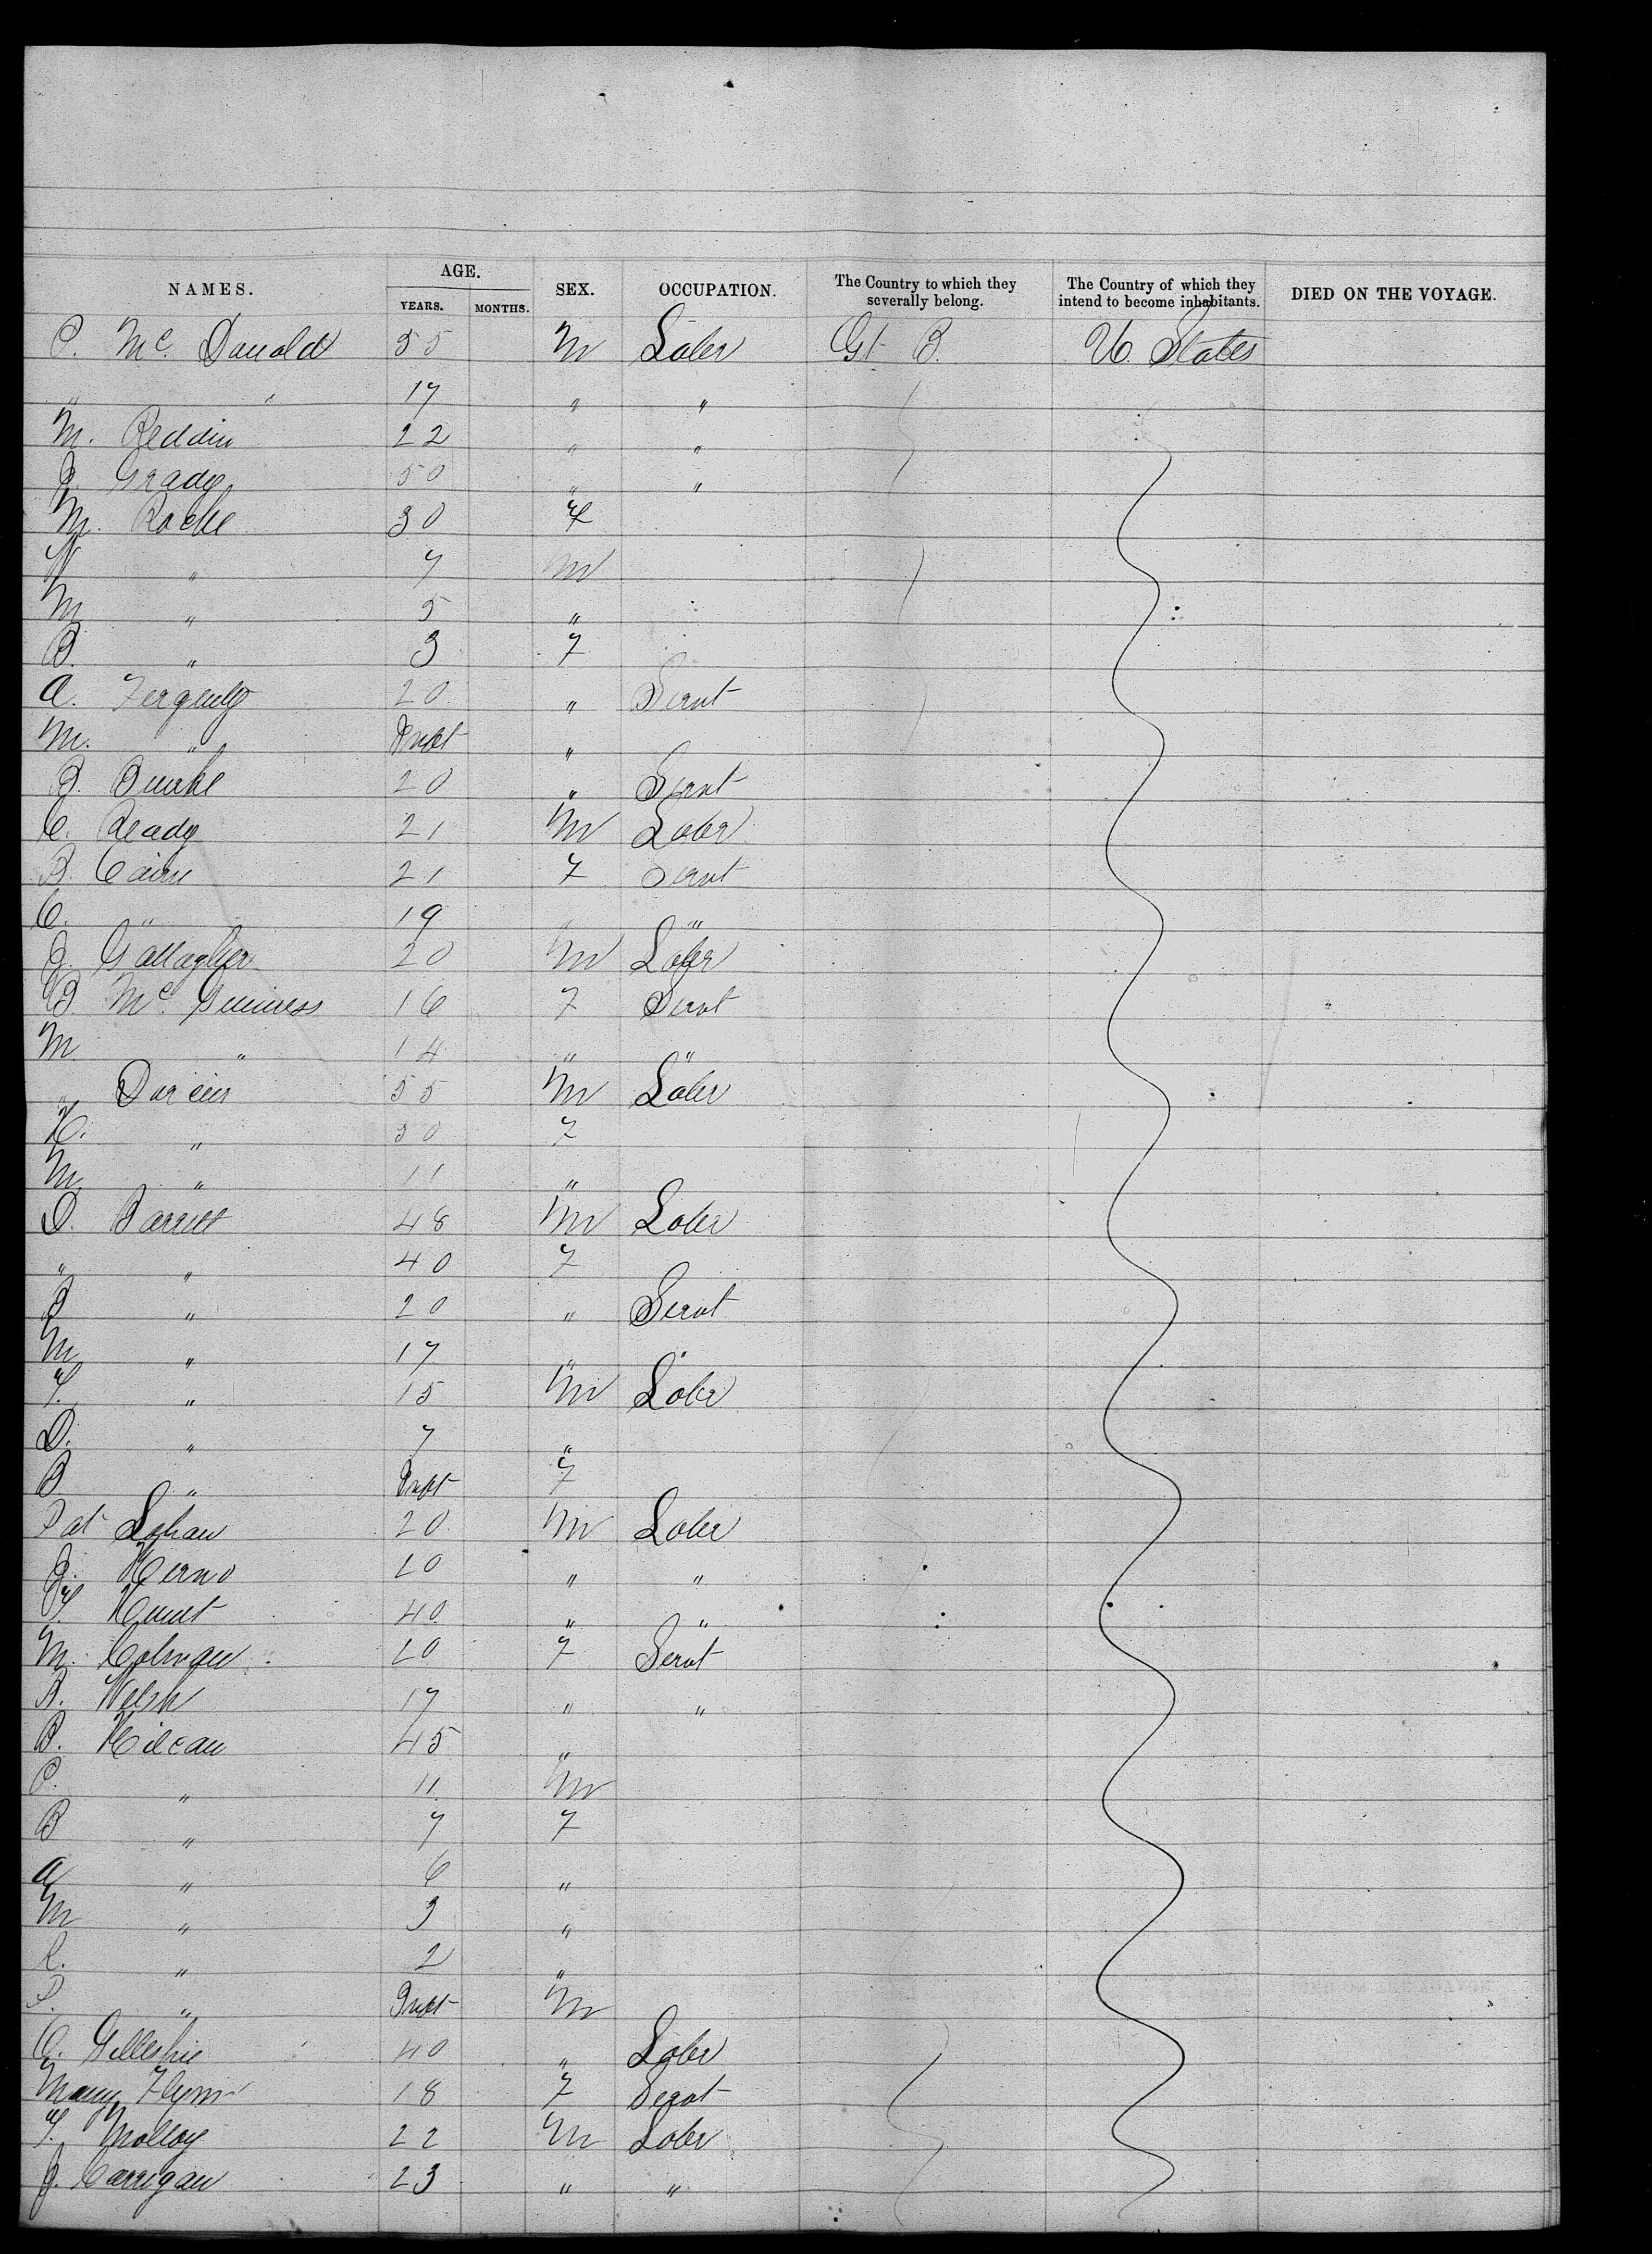 NAMES. AGE. YEARS. MONTHS. SEX. OCCUPATION. The Country to which they severally belong. The Country of which they intend to become inhabitants. DIED ON THE VOYAGE.
P. Mc. Donald 55 M Laber Gt B. U. States
" " 17 " "
M. Reddin 22 " "
J. Grady 50 " "
M. Roche 30 F
N " 7 M
M " 5 "
B. " 3 F
A. " 20 " Servt
M. " Inft "
B. Burke 20 " Servt
C. Ready 21 M Laber
B. Cain 21 F Servt
C. " 19 " "
J. Gallagher 20 M Laber
B. Mc. Guiness 16 F Servt
M " 14 " "
" 55 M Laber
H. " 30 F
M " 11 "
D. Barrett 48 M Laber
" " 40 F
" 20 " Servt
M " 17 " "
T. " 15 M Laber
D. " 7 "
B " Inft F
Pat Lohan 20 M Laber
J. 20 " "
T. Hunt 40 " "
M. Colman 20 F Servt
B. Welsh 17 " "
B. Kilcan 45 "
P. " 11 M
B " 7 F
A " 6 "
M " 3 "
" 2 "
P. " Inft M
C. Gilleshie 40 " Laber
Mary Flynn 18 F Servt
T. Molloy 22 M Laber
J. Carrigan 23 " "